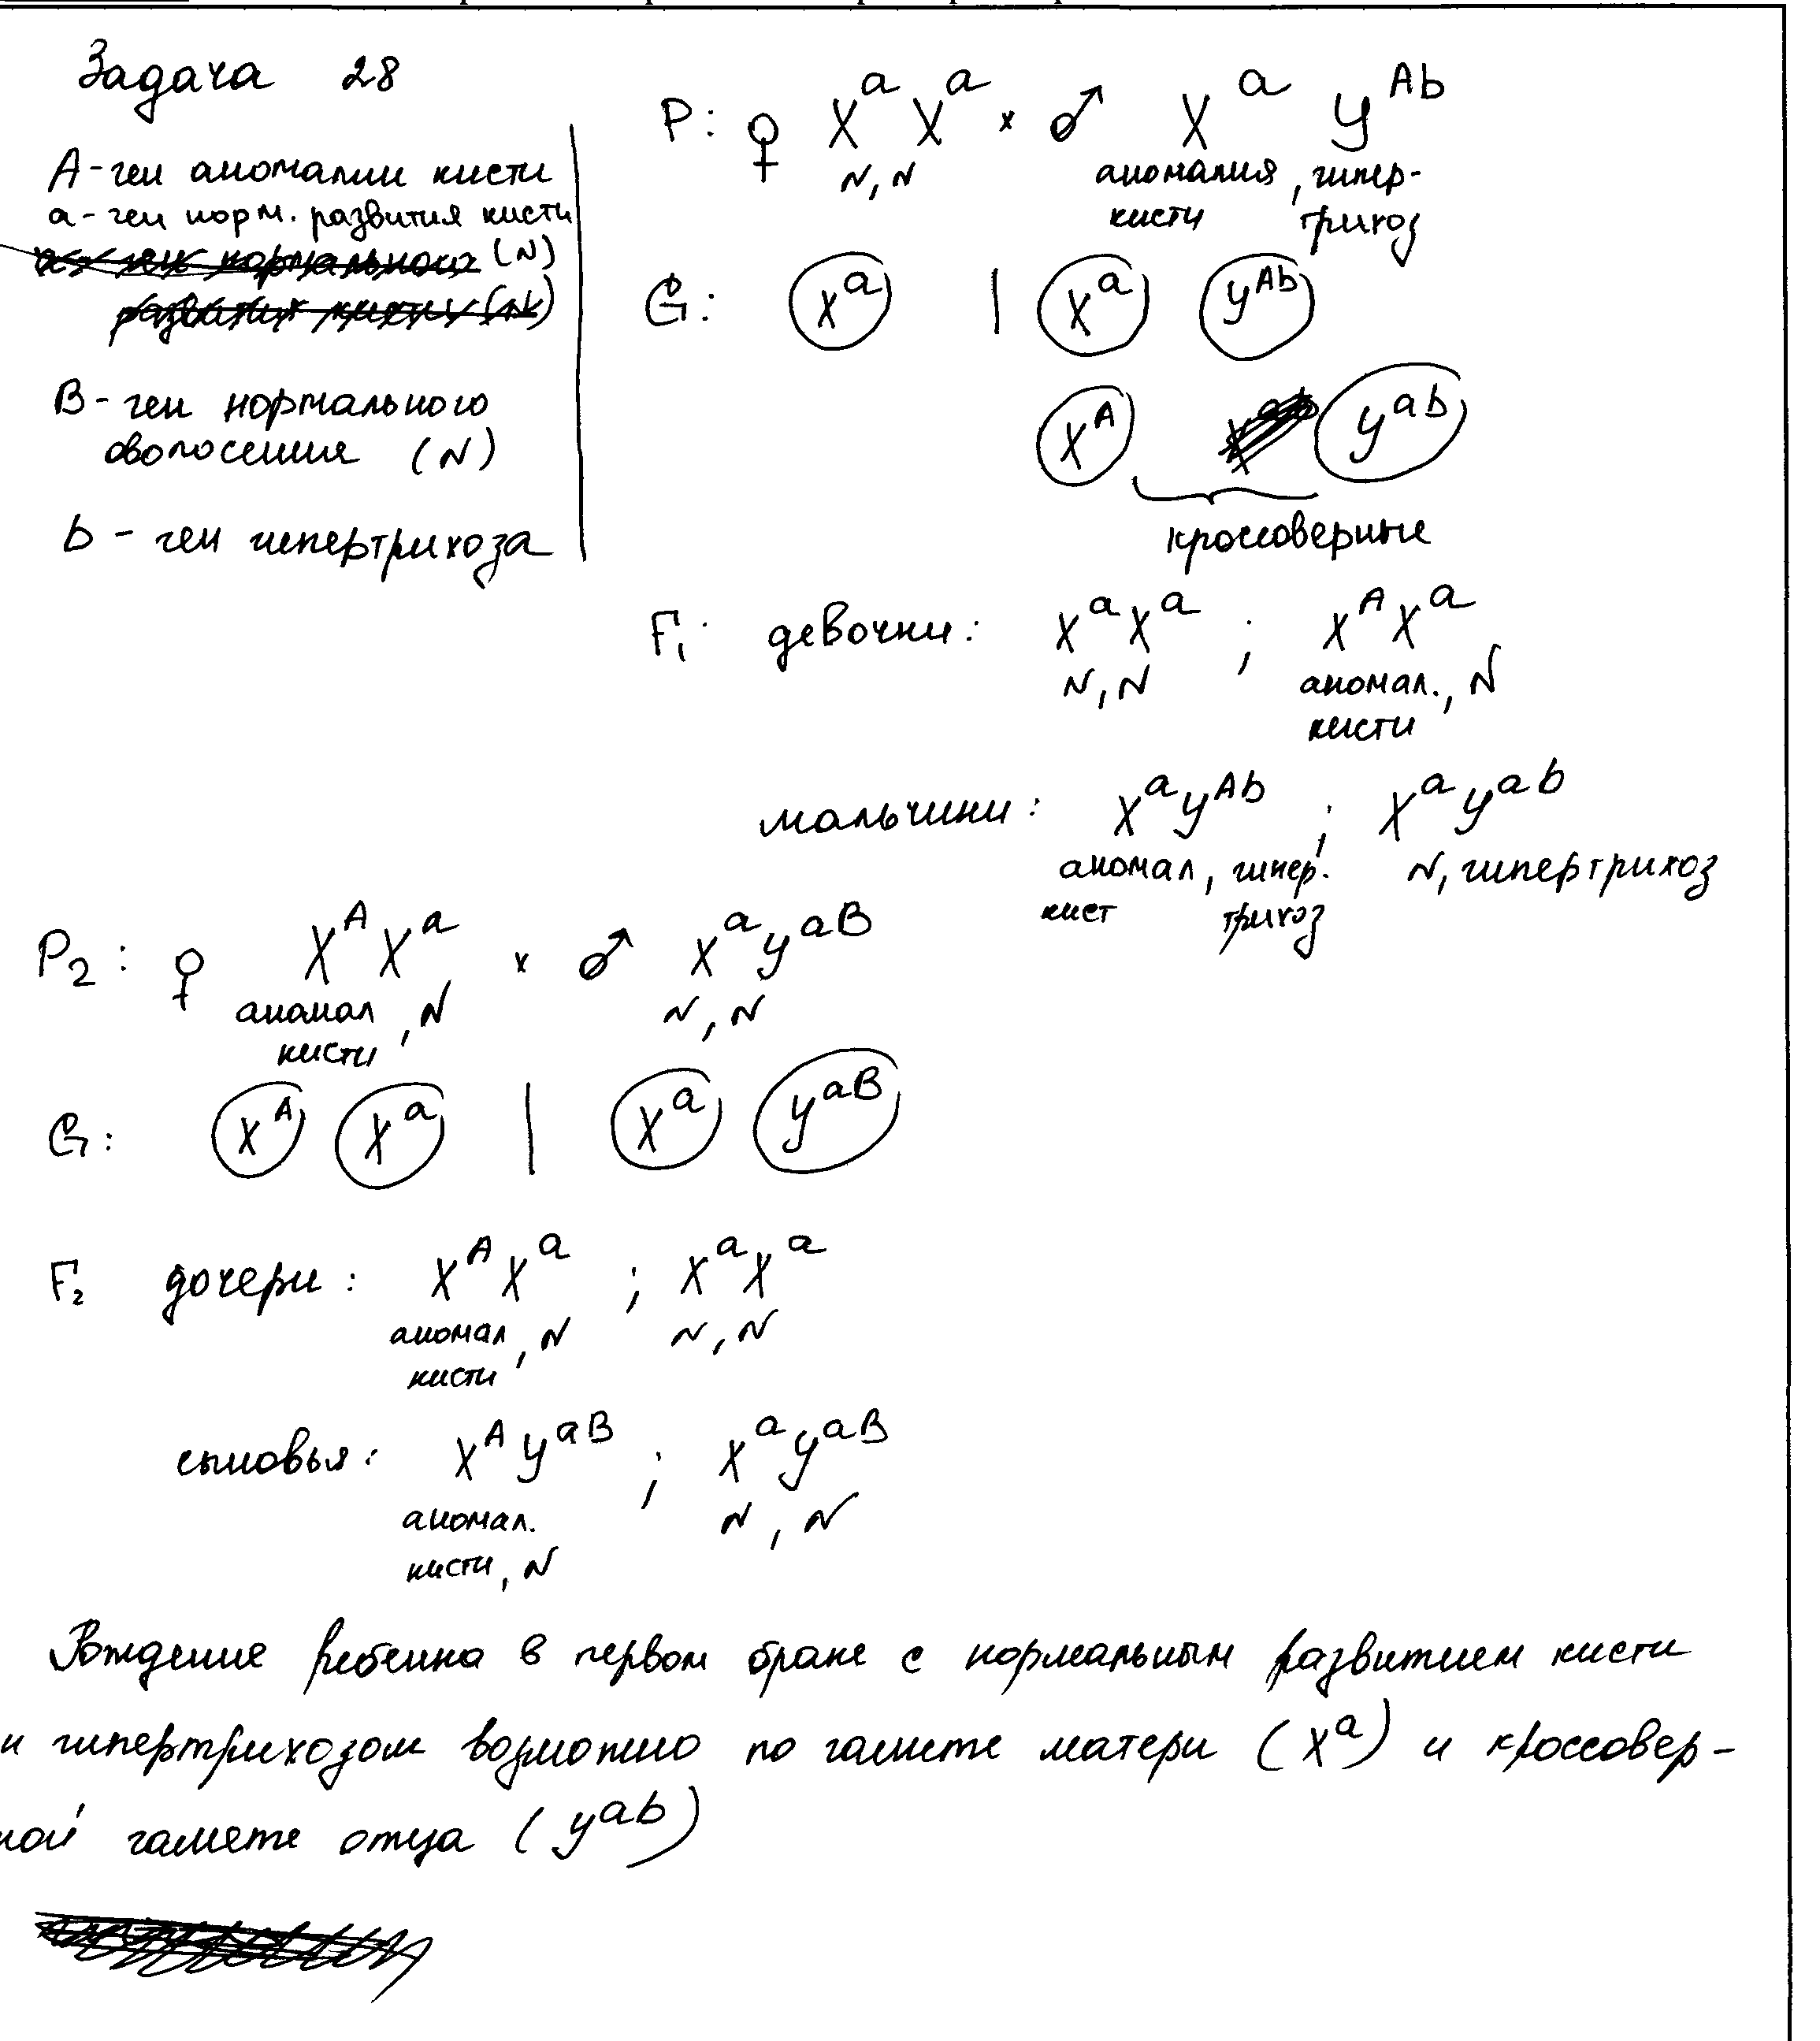 Задача 28
А - ген аномалии кисти
а - ген норм. развития кисти
(N)
В - ген нормального
оволосения (N)
b - ген гипертрихоза
P: ♀ XᵃXᵃ × ♂ Xᵃ Yᴬᵇ
N, N аномалия, гипер-
кисти трихоз
G: Xᵃ | Xᵃ Yᴬᵇ
Xᴬ Yᵃᵇ
кроссоверные
F₁: девочки: XᵃXᵃ ; XᴬXᵃ
N, N аномал., N
кисти
мальчики: XᵃYᴬᵇ ; XᵃYᵃᵇ
аномал, гипер. N, гипертрихоз
кист трихоз
P₂: ♀ XᴬXᵃ × ♂ XᵃYᵃᴮ
аномал, N N, N
кисти
G: Xᴬ Xᵃ | Xᵃ Yᵃᴮ
F₂ дочери: XᴬXᵃ ; XᵃXᵃ
аномал, N N, N
кисти
сыновья: XᴬYᵃᴮ ; XᵃYᵃᴮ
аномал. N, N
кисти, N
Рождение ребенка в первом браке с нормальным развитием кисти
и гипертрихозом возможно по гамете матери (Xᵃ) и кроссовер-
ной гамете отца (Yᵃᵇ)